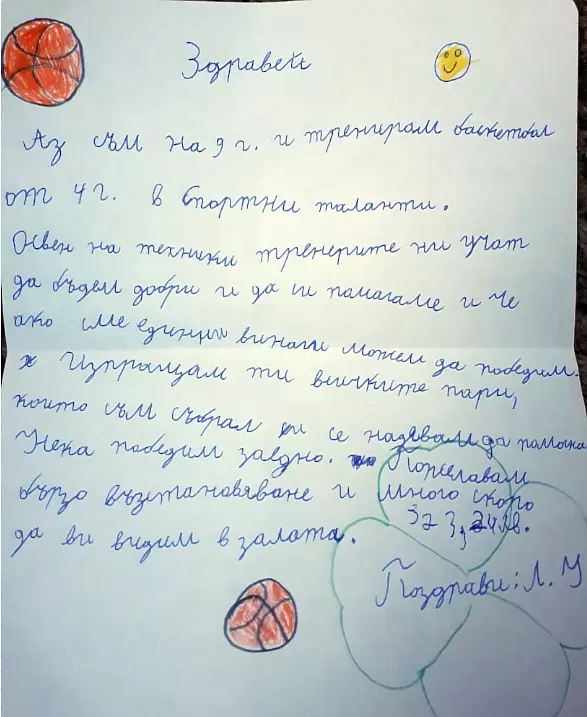 Здравей
Аз съм на 9 г. и тренирам баскетбол
от 4 г. в Спортни таланти.
Освен на техники тренерите ни учат
да бъдем добри и да си помагаме и че
ако сме единни винаги можем да победим.
Изпращам ти всичките пари,
които съм събрал и се надявам да помогна
Нека победим заедно. Пожелавам
бързо възстановяване и много скоро
323,24лв.
да ви видим в залата.
Поздрави: Л. У